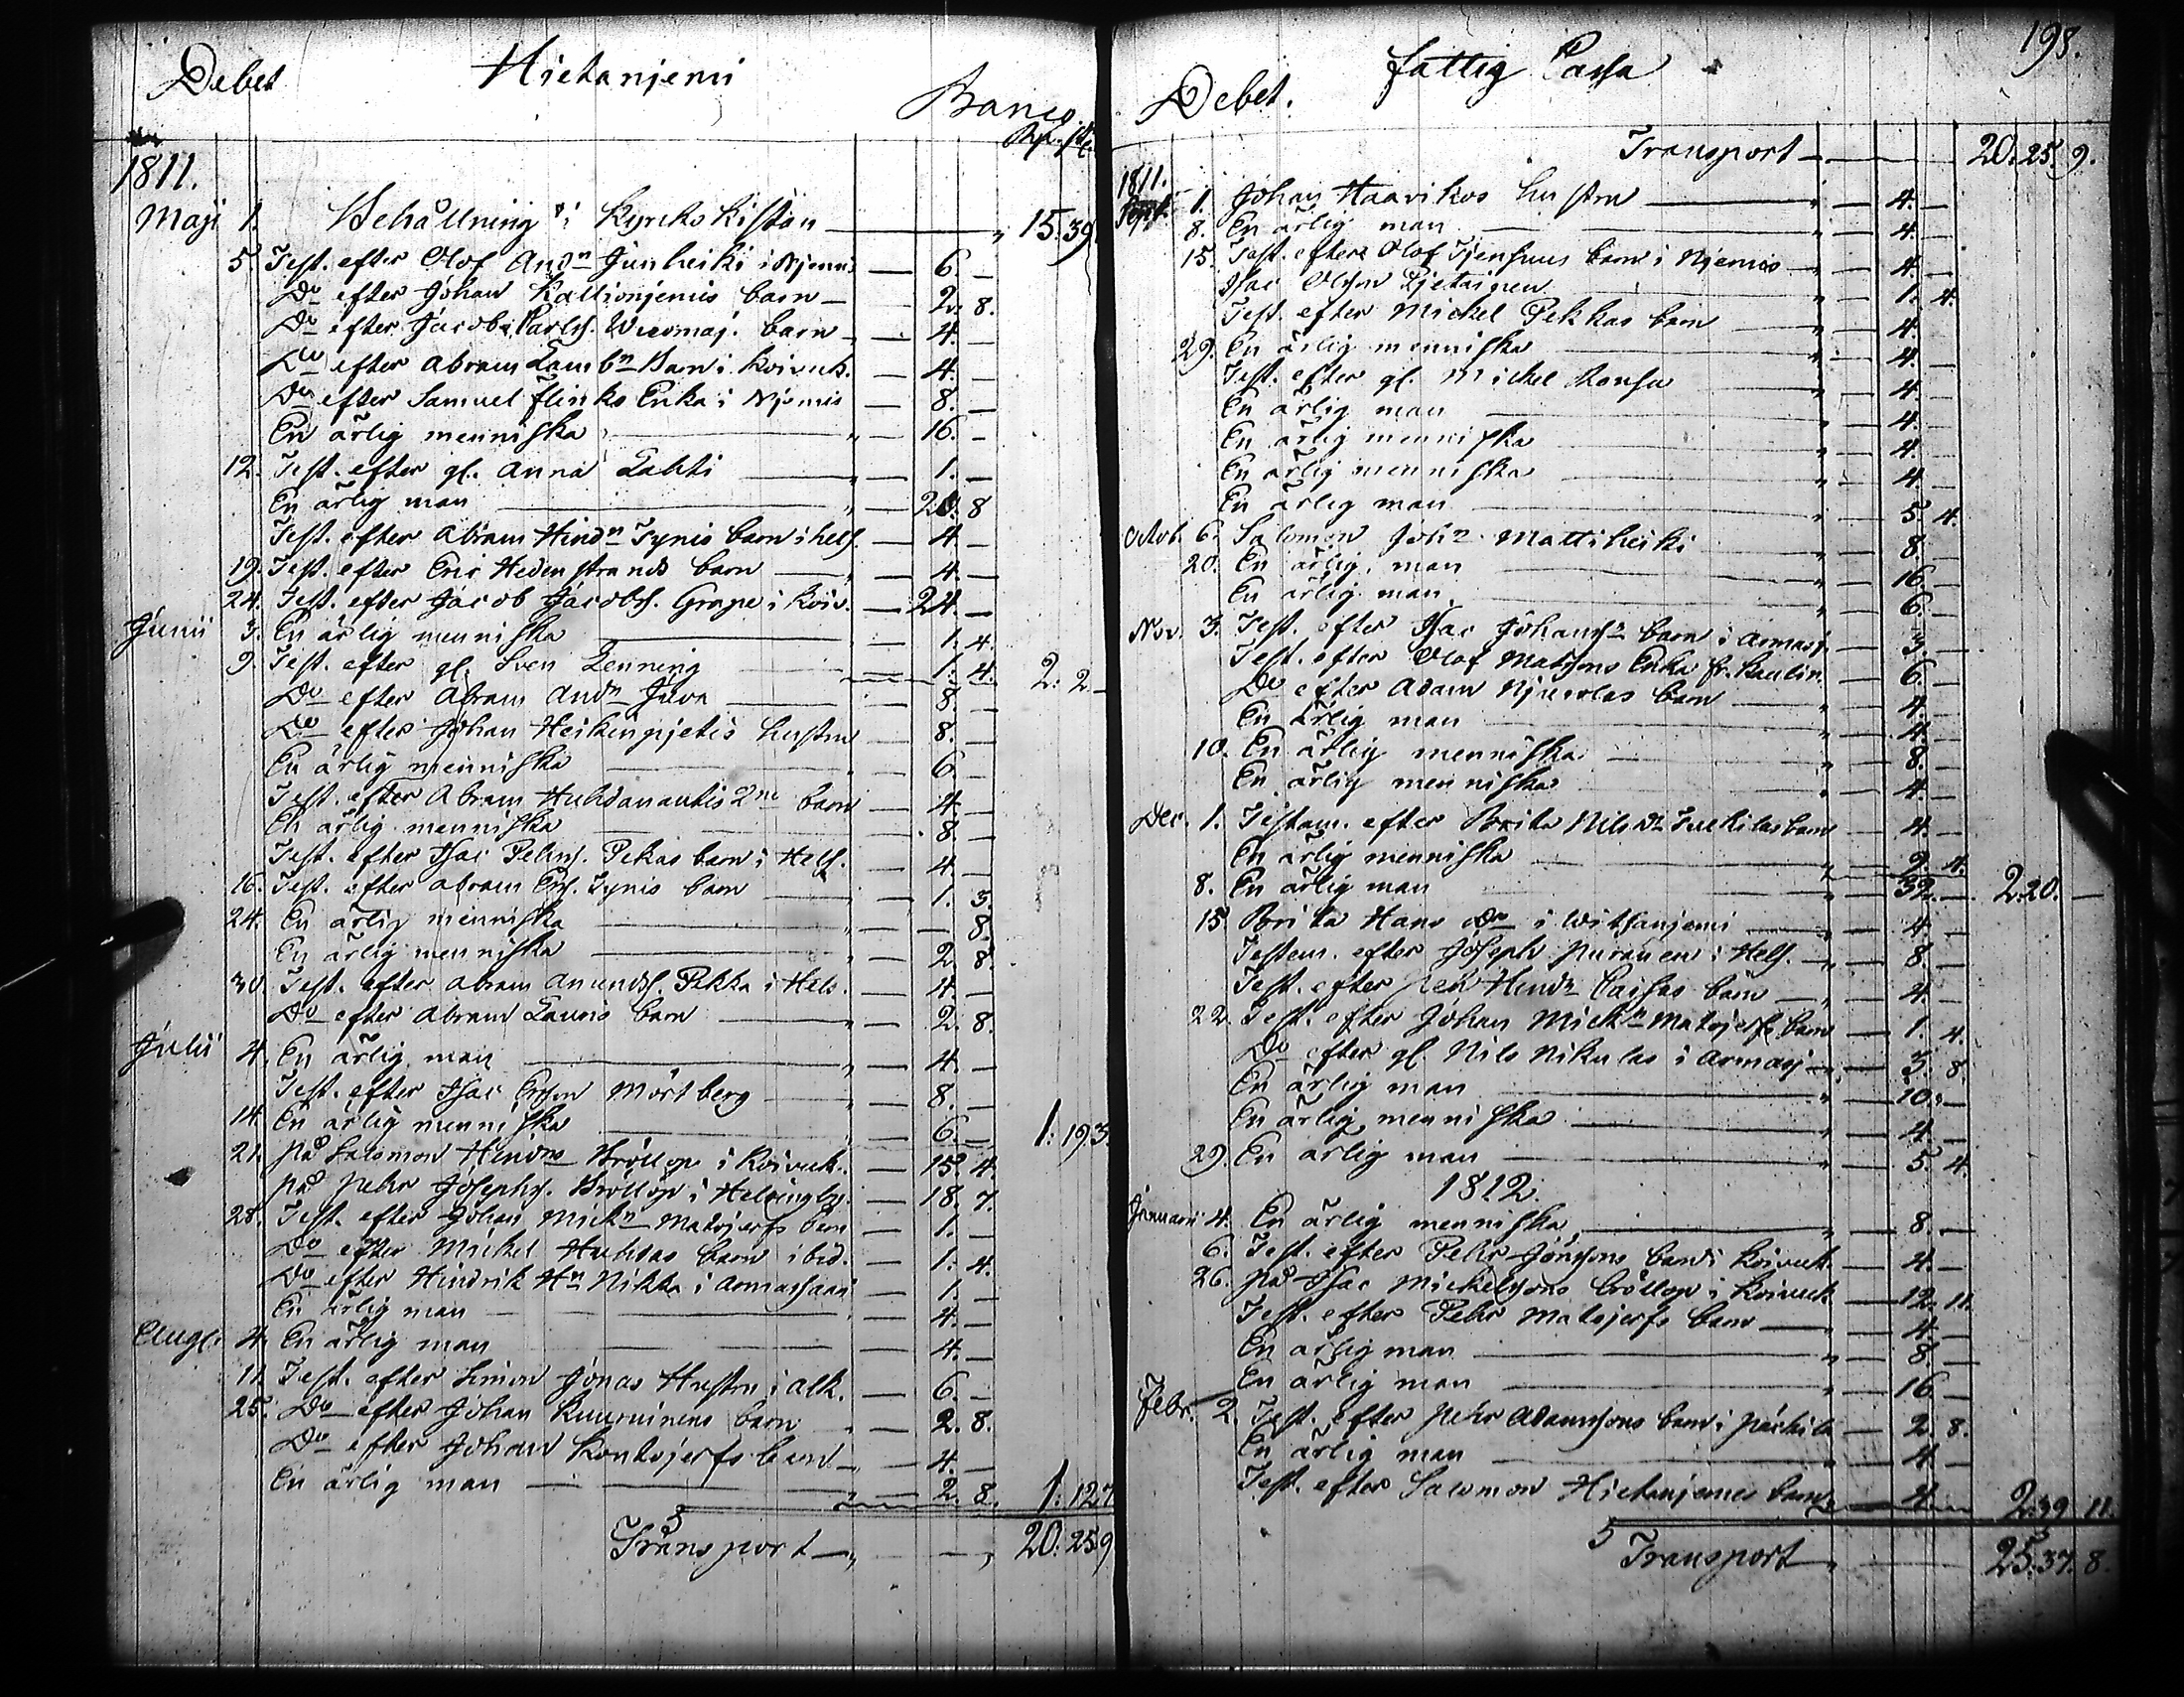 Debet Hietanjemi
Banco
Rd. sk.
1811.
Maji 1. Behållning i Kyrko Kistan — 15. 39
5. Test. efter Olof Andn Junheiki i Njemis — 6. —
Do efter Johan Kallionjemis barn — 2. 8.
Do efter Jacob Carls. Wuomaj. barn — 4. —
Do efter Abram Lambn Barn i Koivuk. — 4. —
Do efter Samuel Flinks Enka i Njemis — 8. —
En ärlig menniska — 16. —
12. Test. efter gl. Anna Lahti — 1. —
En ärlig man — 20. 8
Test. efter Abram Hindn Tynis barn i hels. — 4. —
19. Test. efter Eric Hedenstrands barn — 4. —
24. Test. efter Jacob Jacobs. Grape i Koiv. — 24. —
Junii 3. En ärlig menniska — 1. 4.
9. Test. efter gl. Sven Lenning — 1. 4. 2: 2 —
Do efter Abram Andn Juva — 8. —
Do efter Johan Heikinpjetis hustru — 8. —
En ärlig menniska — 6. —
Test. efter Abram Huhdanantis 2ne barn — 4. —
En ärlig menniska — 8. —
Test. efter Isac Pehrs. Pekas barn i Hels. — 4. —
16. Test. efter Abram Ers. Tynis barn — 1. 3.
24. En ärlig menniska — 8.
En ärlig menniska — 2. 8.
30. Test. efter Abram Amunds. Pekka i Hels. — 4. —
Do efter Abram Lauris barn — 2. 8.
Julii 4. En ärlig man — 4. —
Test. efter Isac Ersson Mörtberg — 8. —
14. En ärlig menniska — 6. — 1: 19. 3.
21. På Salomon Hindns Bröllop i Koivuk. — 15. 4.
på Pehr Josephs. Bröllop i Helsingby. — 18. 7.
28. Test. efter Johan Mickn Matojerfs barn — 1. —
Do efter Mickel Huhtas barn ibid. — 1. 4.
Do efter Hindrik Hn Nikka i Armassaari — 1. —
En ärlig man — 4. —
Augs. 4. En ärlig man — 4. —
11. Test. efter Simon Jonas Hustru i Alk. — 6. —
25. Do efter Johan Kuuruinens barn — 2. 8.
Do efter Johan Kontojerfs barn — 4. —
En ärlig man — 2. 8. 1: 12. 7
Transport — 20: 25. 9
198.
Debet. fattig Cassa
Transport — 20. 25. 9.
1811.
Sept. 1. Johan Haavikos hustru — 4. —
8. En ärlig man — 4. —
15. Test. efter Olof Tjenhuus barn i Njemis — 4. —
Isac Olsson Pjetainen — 1. 4.
Test. efter Mickel Pekkas barn — 4. —
29. En ärlig menniska — 4. —
Test. efter gl. Mickel Ronsu — 4. —
En ärlig man — 4. —
En ärlig menniska — 4. —
En ärlig menniska — 4. —
En ärlig man — 5. 4.
Octob. 6. Salomon John Mattiheiki — 8. —
20. En ärlig man — 16. —
En ärlig man — 6. —
Nov. 3. Test. efter Isac Johansn barn i Armasj. — 3. —
Test. efter Olof Matssons Enka fr. Kaulin. — 6. —
Do efter Adam Njuolas barn — 4. —
En ärlig man — 4. —
10. En ärlig menniska — 8. —
En ärlig menniska — 4. —
Dec. 1. Testam. efter Brita Nilsdr barn — 4. —
En ärlig menniska — 9. 4.
8. En ärlig man — 32. — 2: 20. —
15. Brita Hans Dr i Witsanjemi — 4. —
Testam. efter Joseph Puranen i Hels. — 8. —
Test. efter Pehr Hindn Caisas barn — 4. —
22. Test. efter Johan Mickn Matojerfs barn — 1. 4.
Do efter gl. Nils Nikulas i Armasj. — 3. 8.
En ärlig man — 10. —
En ärlig menniska — 4. —
29. En ärlig man — 5. 4.
1812.
Januarii 4. En ärlig menniska — 8. —
6. Test. efter Pehr Jönssons barn i Koivuk. — 4. —
26. på Isac Mickelssons bröllop i Koivuk. — 12. 11.
Test. efter Pehr Matojerfs barn — 4. —
En ärlig man — 8. —
En ärlig man — 16. —
Febr. 2. Test. efter Pehr Adamssons barn i Päckilä — 2. 8.
En ärlig man — 4. —
Test. efter Salomon Hietanjemis barn — 4. — 2: 39. 11.
Transport — 25. 37. 8.